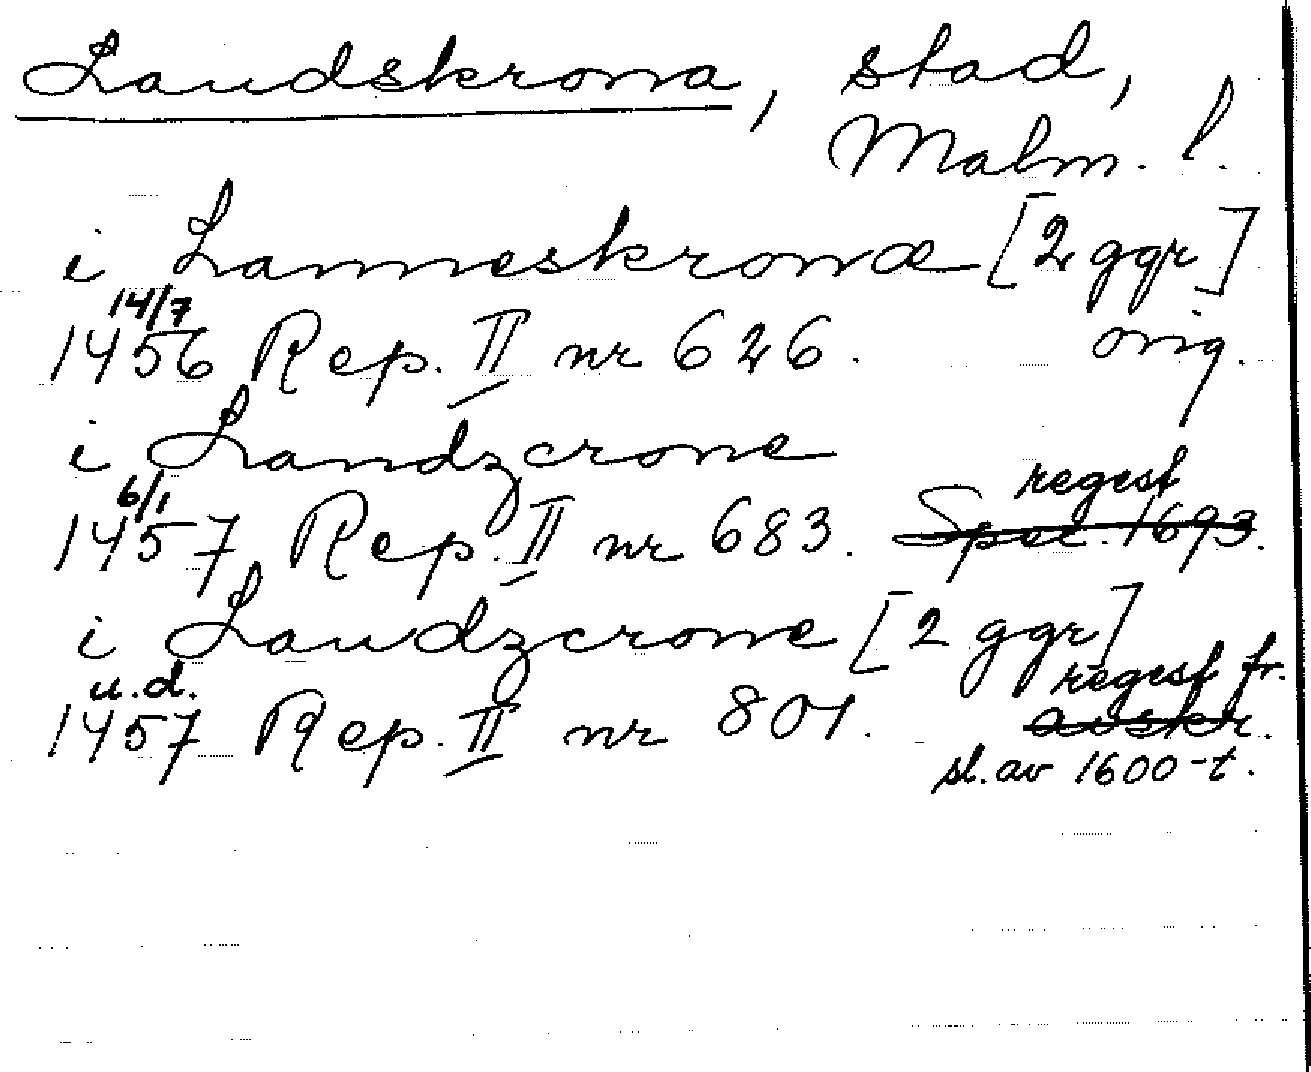 Landskrona, stad,
Malm. l.
i Lanneskronæ [2 ggr]
14/7
1456 Rep. II nr 626. orig.
i Landzcrone
6/1 regest
1457 Rep. II nr 683. Spec. 1693.
i Landzcrone [2 ggr]
u.d. regest fr.
1457 Rep. II nr 801. avskr.
sl. av 1600-t.